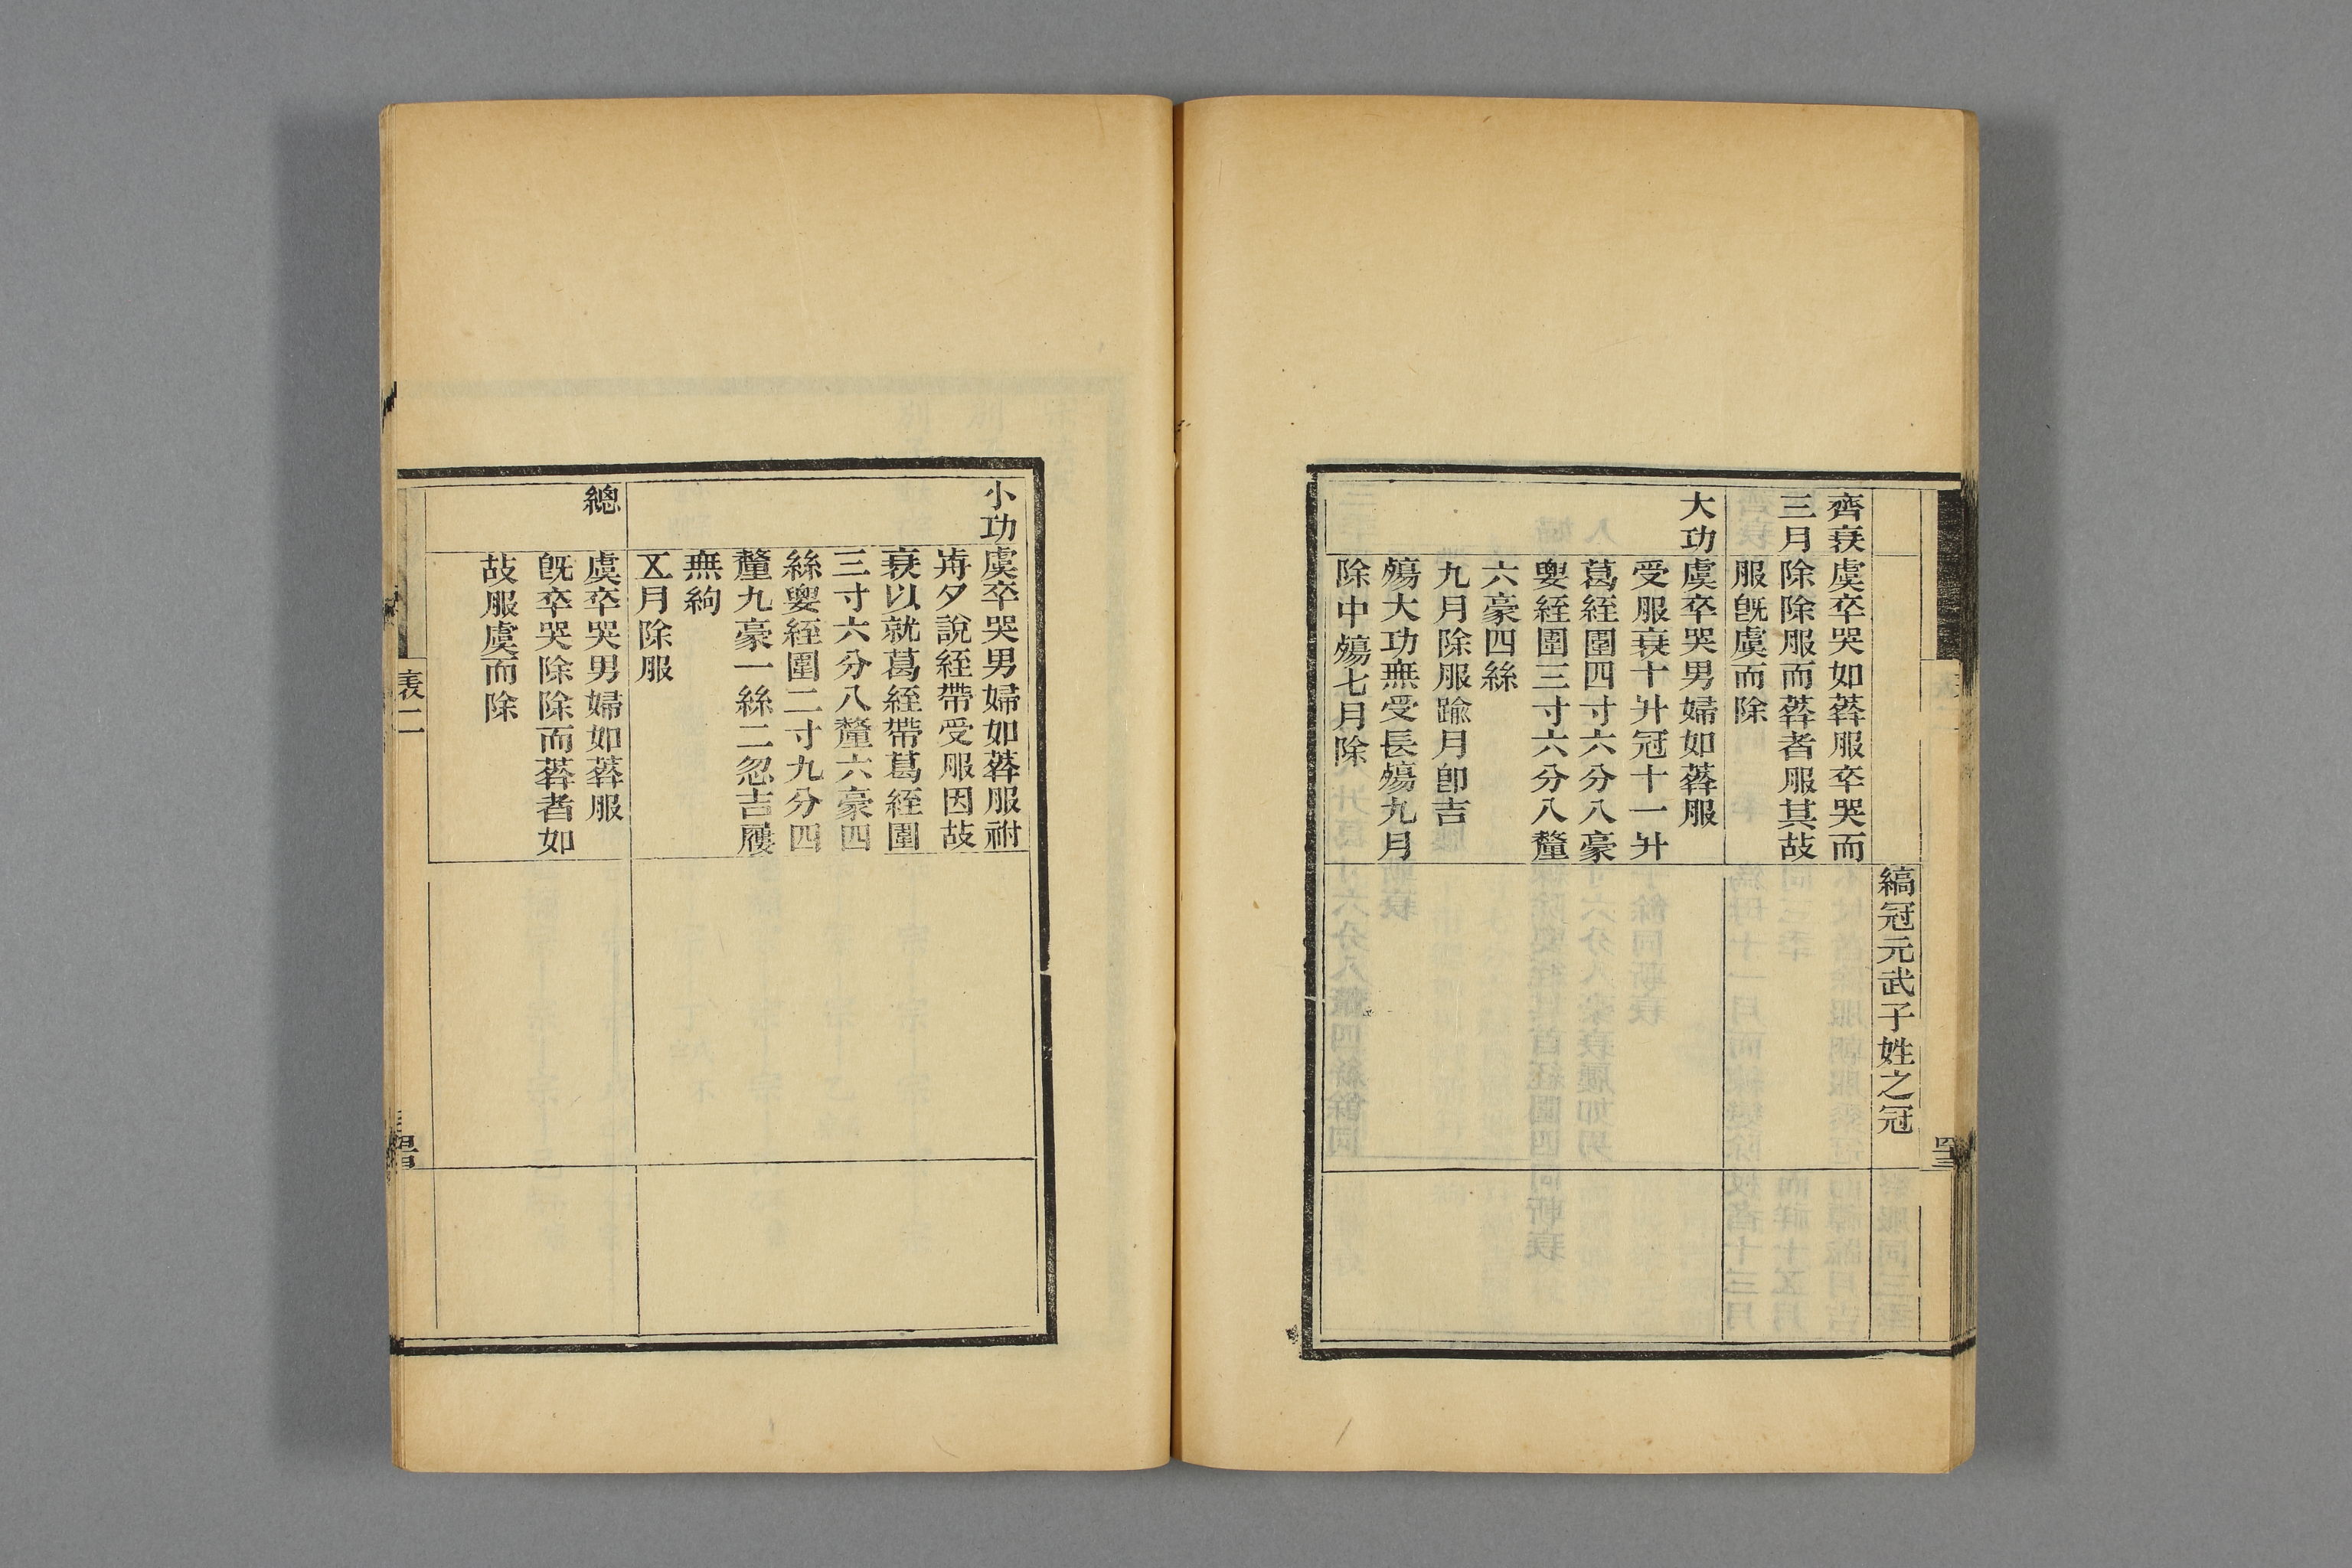 縞冠元武子姓之冠
齊衰虞卒哭如葬服卒哭而
三月除除服而葬者服其故
服旣虞而除
大功虞卒哭男婦如葬服
受服衰十升冠十一升
葛絰圍四寸六分八豪
要絰圍三寸六分八釐
六豪四絲
九月除服踰月卽吉
殤大功無受長殤九月
除中殤七月除
四十三
小功虞卒哭男婦如葬服祔
歬夕說絰帶受服因故
衰以就葛絰帶葛絰圍
三寸六分八釐六豪四
絲要絰圍二寸九分四
釐九豪一絲二忽吉屨
無絇
五月除服
緦
虞卒哭男婦如葬服
旣卒哭除除而葬者如
故服虞而除
表二